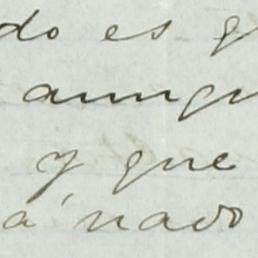 do es q
aunqu
y que
a' nado